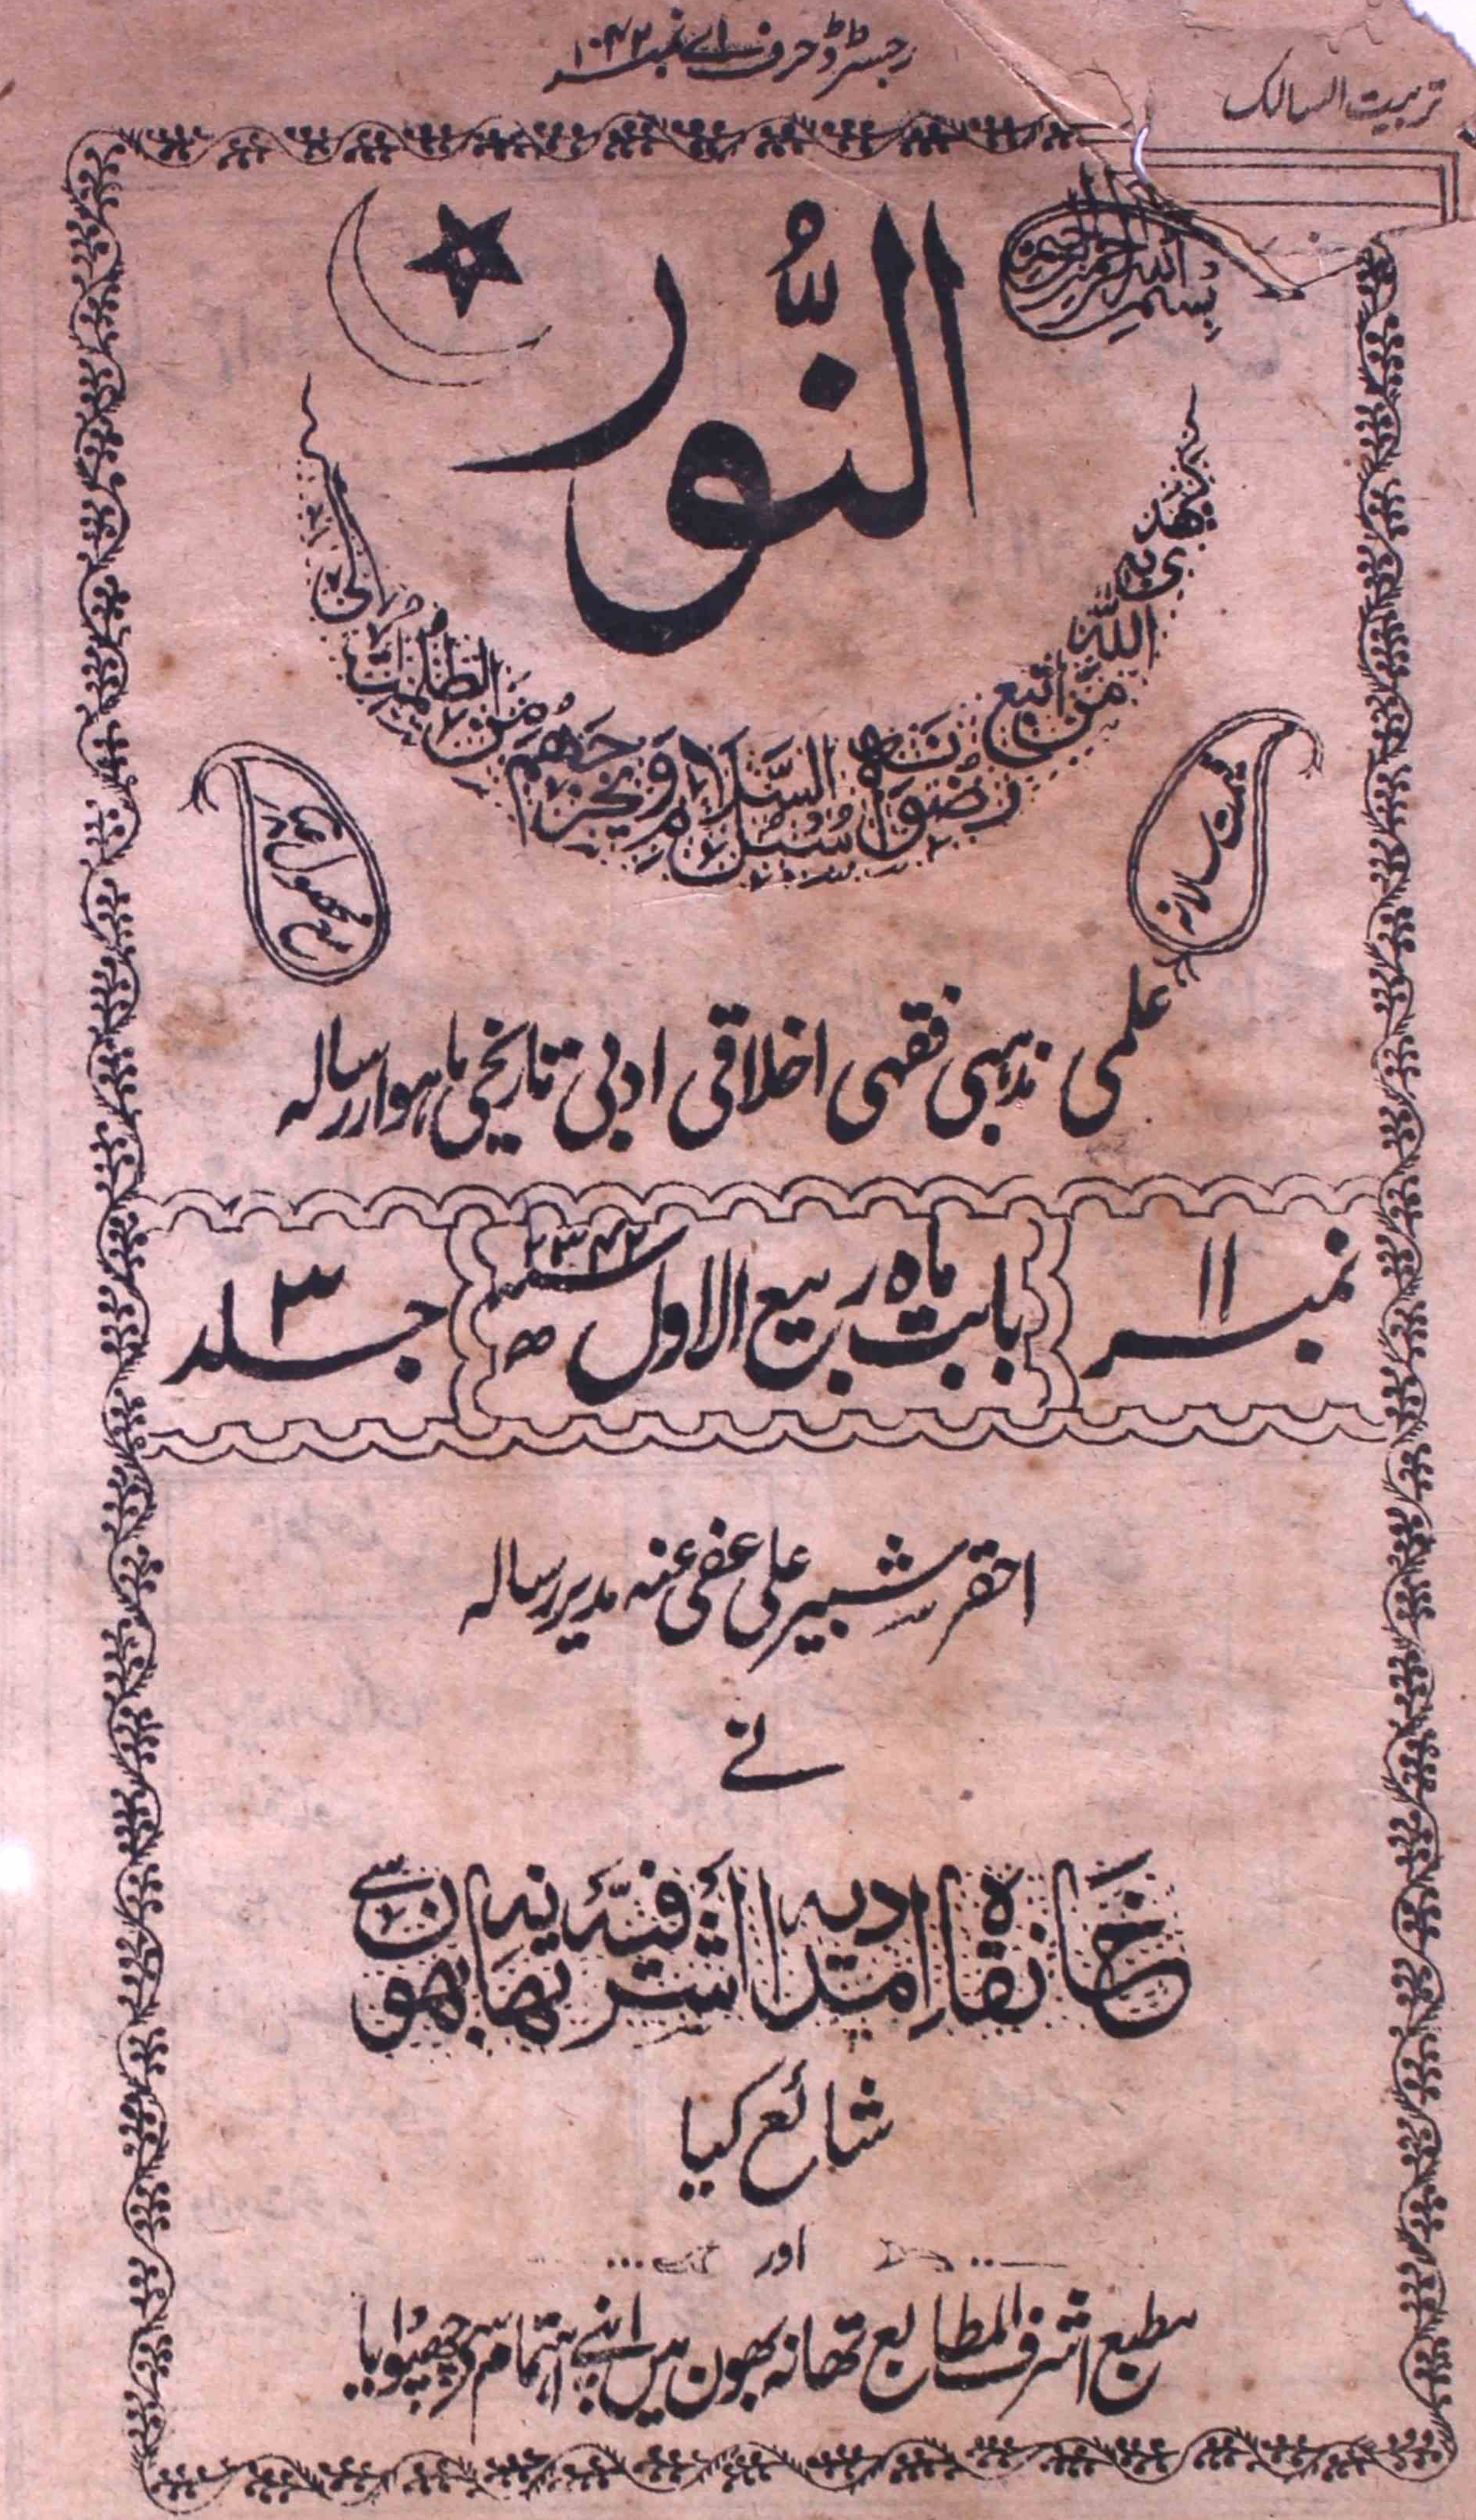 رجسٹرڈ حرف اے نمبر ۱۰۴۲
تربیت السالک
بسم اللہ الرحمن الرحیم
النُّور
یَهْدِی بِهِ اللّٰهُ مَنِ اتَّبَعَ رِضْوَانَهٗ سُبُلَ السَّلَامِ وَیُخْرِجُهُمْ مِنَ الظُّلُمٰتِ اِلَی
قیمت سالانہ
مع محصول
علمی مذہبی فقہی اخلاقی ادبی تاریخی ماہوار رسالہ
نمبر ۱۱
بابت ماہ ربیع الاول سنہ ۱۳۴۲ ھ
جلد ۳
احقر شبیر علی عفی عنہ مدیر رسالہ
نے
خانقاہ امدادیہ اشرفیہ تھانہ بھون سے
شائع کیا
اور
مطبع اشرف المطابع تھانہ بھون میں اپنے اہتمام سے چھپوایا